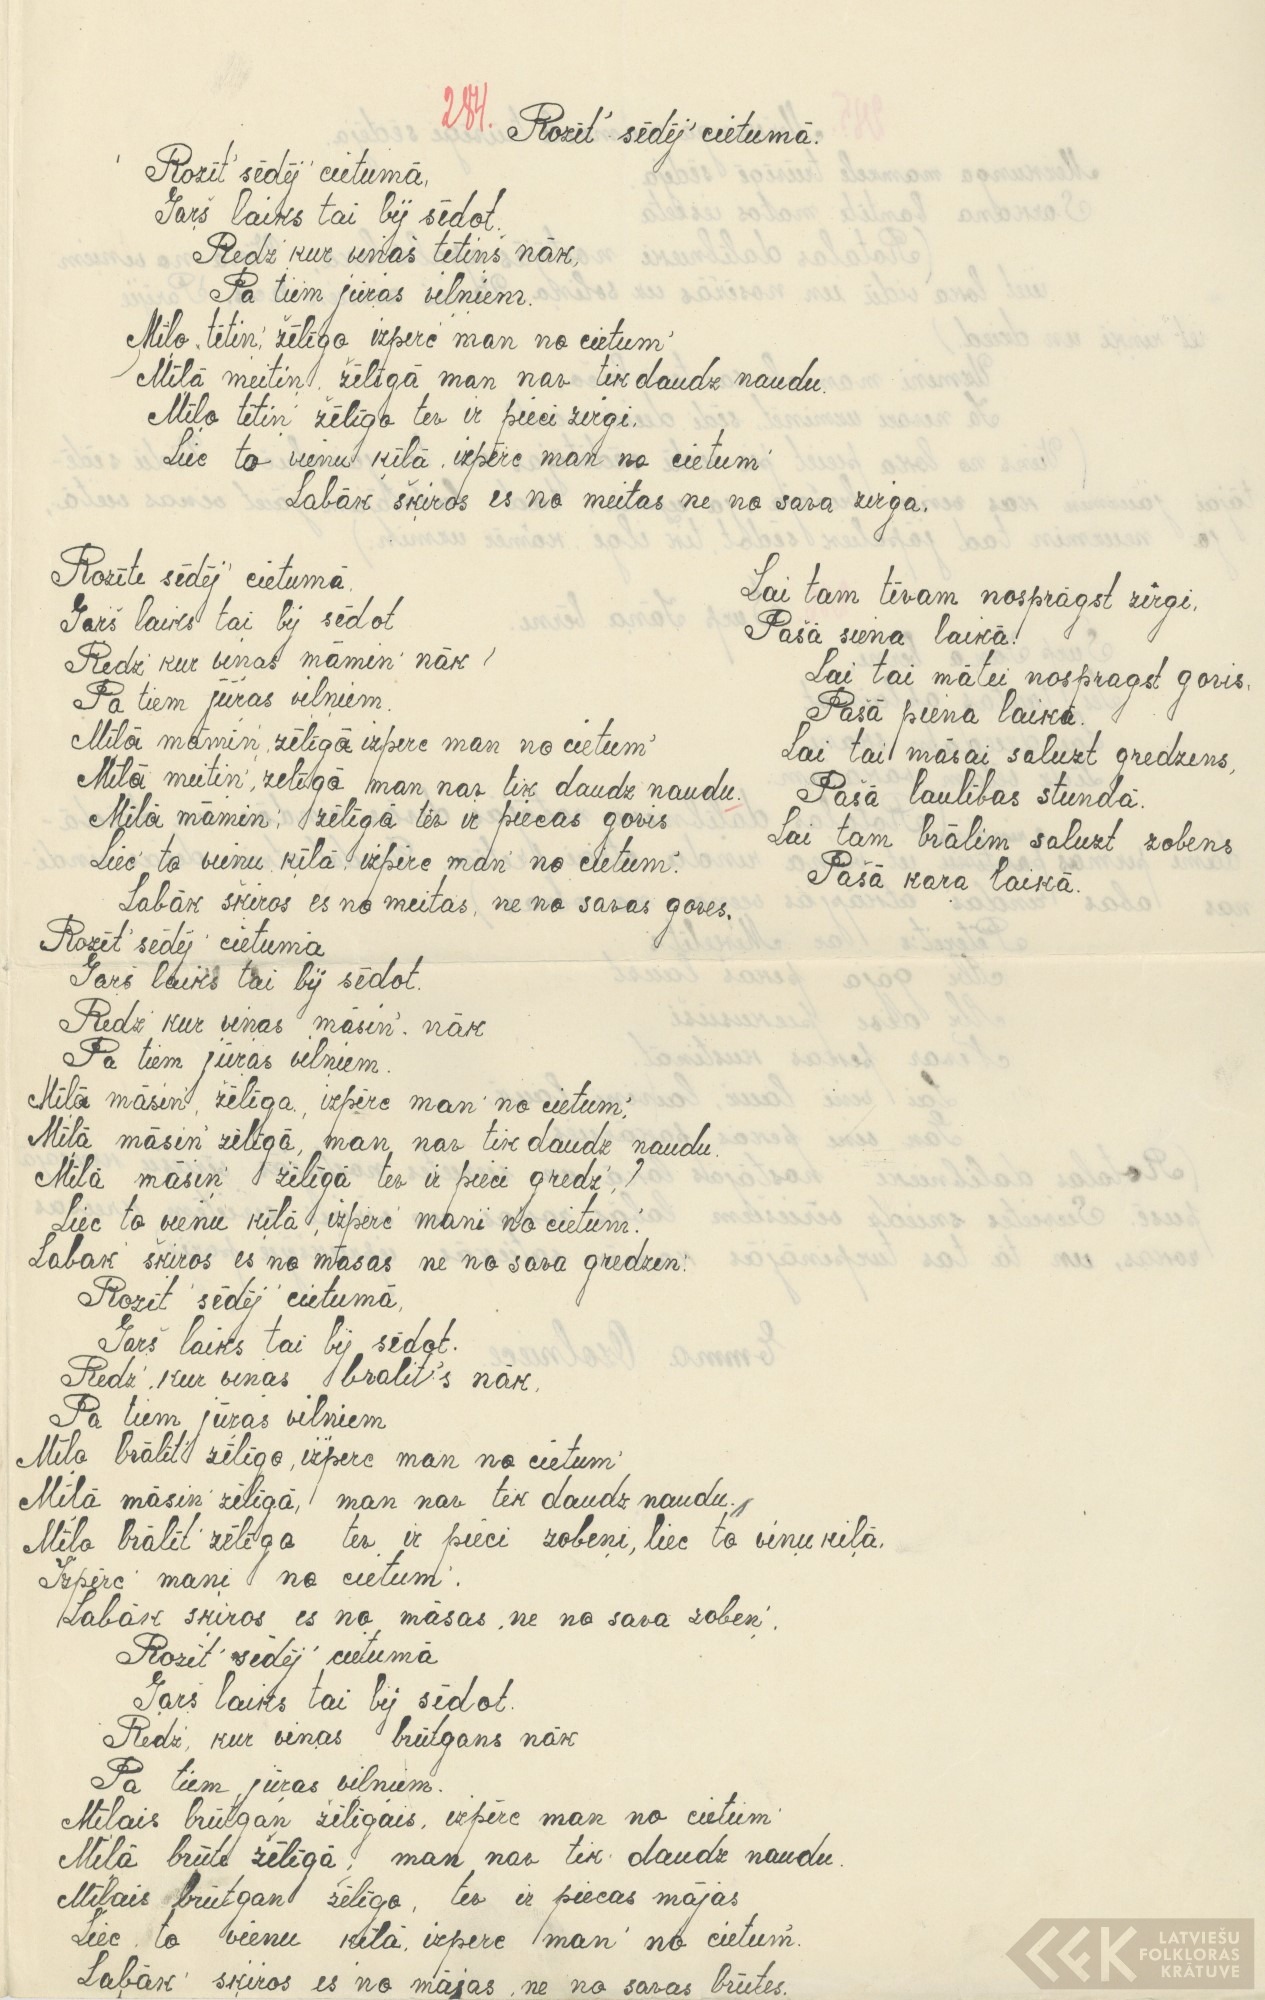 284.
Rozīt' sēdēj' cietumā.
Rozīt' sēdēj' cietumā,
Garš laiks tai bij sēdot.
Redz' kur viņas tētiņš nāk,
Pa tiem jūras vilņiem.
Mīļo tētiņ', žēlīgo izpērc man no cietum'
Mīļā meitiņ, žēlīgā man nav tik daudz naudu.
Mīļo tētiņ' žēlīgo tev ir pieci zirgi,
Liec to vienu ķīlā, izpērc man no cietum'
Labāk šķiros es no meitas ne no sava zirga.
Rozīte sēdēj' cietumā.
Garš laiks tai bij sēdot
Redz' kur viņas māmiņ' nāk
Pa tiem jūras vilņiem.
Mīļā māmiņ, žēlīgā izpērc man no cietum'
Mīļā meitiņ', žēlīgā man nav tik daudz naudu.
Mīļā māmiņ', žēlīgā tev ir piecas govis
Liec to vienu ķīlā, izpērc man' no cietum'.
Labāk šķiros es no meitas, ne no savas goves.
Rozīt' sēdēj' cietumā
Garš laiks tai bij sēdot.
Redz' kur viņas māsiņ' nāk
Pa tiem jūras vilņiem.
Mīļā māsiņ', žēlīga, izpērc man' no cietum',
Mīļā māsiņ' žēlīgā, man nav tik daudz naudu.
Mīļā māsiņ' žēlīgā tev ir pieci gredz',
Liec to vienu ķīlā, izpērc mani no cietum'.
Labāk' šķiros es no māsas ne no sava gredzen'.
Rozīt' sēdēj' cietumā,
Garš laiks tai bij sēdot.
Redz', kur viņas brālīt's nāk,
Pa tiem jūras vilņiem
Mīļo brālīt' žēlīgo, izpērc man no cietum'
Mīļā māsiņ' žēlīgā, man nav tik daudz naudu.
Mīļo brālīt' žēlīgo tev ir pieci zobeņi, liec to viņu ķīļā.
Izpērc' mani no cietum'.
Labāk šķiros es no māsas, ne no sava zobeņ'.
Rozīt' sēdēj' cietumā
Garš laiks tai bij sēdot.
Redz', kur viņas brūtgans nāk
Pa tiem jūras vilņiem.
Mīļais brūtgan žēlīgais, izpērc man no cietum'
Mīļā brūte žēlīgā, man nav tik daudz naudu.
Mīļais brūtgan žēlīgo, tev ir piecas mājas
Liec to vienu ķīlā, izpērc man' no cietum'.
Labāk' šķiros es no mājas, ne no savas brūtes.
Lai tam tēvam nosprāgst zirgi,
Pašā siena laikā.
Lai tai mātei nosprāgst govis,
Pašā piena laikā.
Lai tai māsai saluzt gredzens,
Pašā laulības stundā.
Lai tam brālim saluzt zobens
Pašā kara laikā.
LATVIEŠU
FOLKLORAS
KRĀTUVE